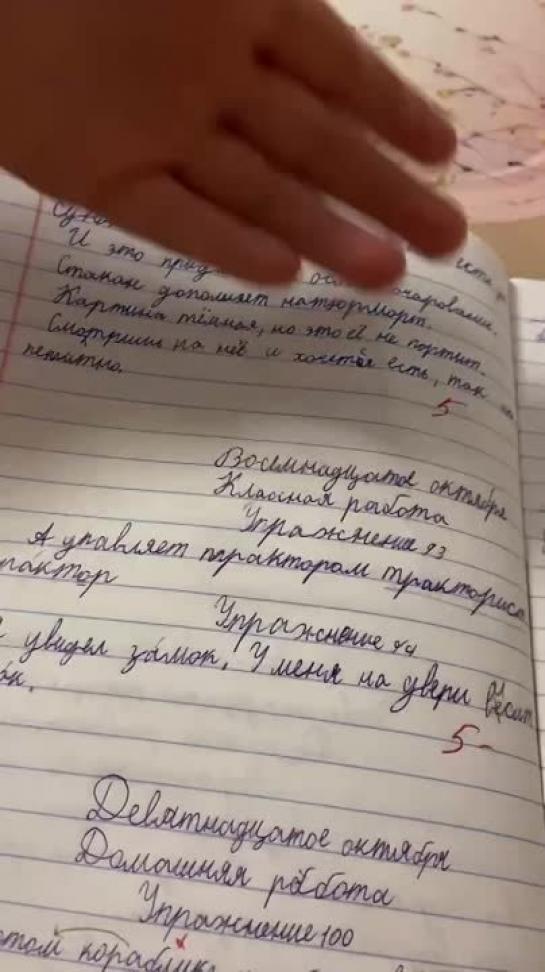 И это прид очаровани.
Стакан дополняет натюрморт.
Картина тёмная, но это её не портит.
Смотришь на неё и хочется есть, так
пепитно.
5
Восемнадцатое октября
Классная работа
Упражнение 93
А управляет трактором тракторист
рактор
Упражнение 94
увидел за́мок. У меня на двери висит
ок.
5-
Девятнадцатое октября
Домашняя работа
Упражнение 100
этом кораблик